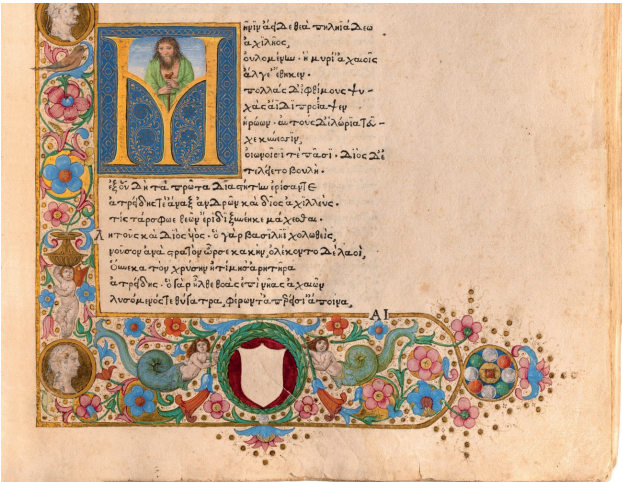 Μῆνιν ἄειδε θεὰ πηληϊάδεω
ἀχιλῆος,
οὐλομένην· ἣ μυρί' ἀχαιοῖς
ἄλγε' ἔθηκεν·
πολλὰς δ' ἰφθίμους ψυ-
χὰς ἄϊδι προΐαψεν
ἡρώων· αὐτοὺς δ' ἑλώρια τεῦ-
χε κύνεσσιν,
οἰωνοῖσί τε πᾶσι· διὸς δ' ἐ-
τελείετο βουλή·
ἐξ οὗ δὴ τὰ πρῶτα διαστήτην ἐρίσαντε
ἀτρείδης τε ἄναξ ἀνδρῶν καὶ δῖος ἀχιλλεύς·
τίς τάρ σφωε θεῶν ἔριδι ξυνέηκε μάχεσθαι·
Λητοῦς καὶ διὸς υἱός· ὁ γὰρ βασιλῆϊ χολωθεὶς,
νοῦσον ἀνὰ στρατὸν ὦρσε κακὴν, ὀλέκοντο δὲ λαοὶ,
οὕνεκα τὸν χρύσην ἠτίμησ' ἀρητῆρα
ἀτρείδης· ὁ γὰρ ἦλθε θοὰς ἐπὶ νῆας ἀχαιῶν
λυσόμενός τε θύγατρα, φέρων τ' ἀπερείσι' ἄποινα,
ΑΙ